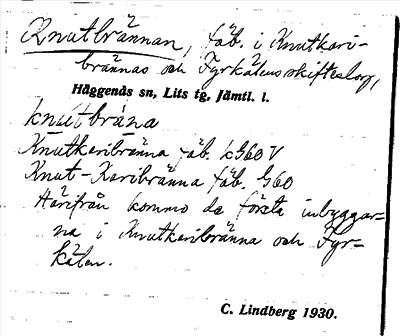 Knutbrännan, fäb. i Knutkari-
brännas och Fyrkälens skifteslag,
Häggenås sn, Lits tg, Jämtl. l.
knùtbrä́na
Knutkaribränna fäb. kG60 V
Knut-Karibränna fäb. G60
Härifrån kommo de första inbyggar-
na i Knutkaribränna och Fyr-
kälen.
C. Lindberg 1930.